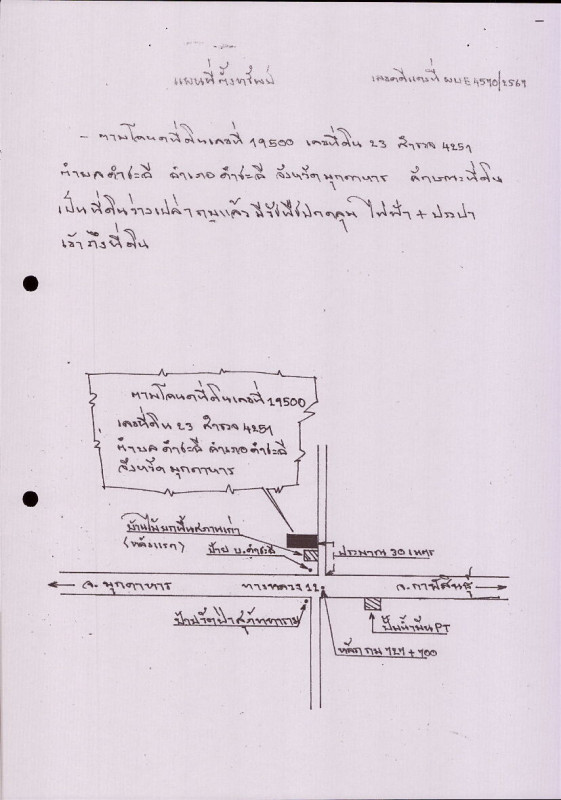 แผนที่ตั้งทรัพย์
เลขคดีแดงที่ ผบE4590/2567
- ตามโฉนดที่ดินเลขที่ 19500 เลขที่ดิน 23 สำรวจ 4251
ตำบลคำชะอี อำเภอคำชะอี จังหวัดมุกดาหาร ลักษณะที่ดิน
เป็นที่ดินว่างเปล่า ถมแล้ว มีวัชพืชปกคลุม ไฟฟ้า + ประปา
เข้าถึงที่ดิน
ตามโฉนดที่ดินเลขที่ 19500
เลขที่ดิน 23 สำรวจ 4251
ตำบลคำชะอี อำเภอคำชะอี
จังหวัดมุกดาหาร
บ้านไม้ยกพื้นสภาพเก่า
(หลังแรก)
ป้าย บ.คำชะอี
ประมาณ 30 เมตร
จ.มุกดาหาร ทางหลวง 12 จ.กาฬสินธุ์
ป้ายวัดป่า
ปั๊มน้ำมัน PT
หลัก กม 727 + 700